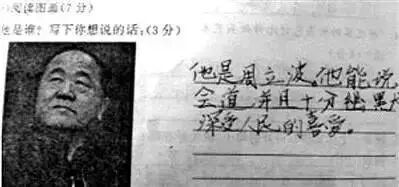 阅读图画(7分)
他是谁?写下你想说的话:(3分)
他是周立波。他能说
会道,并且十分幽默
深受人民的喜爱。